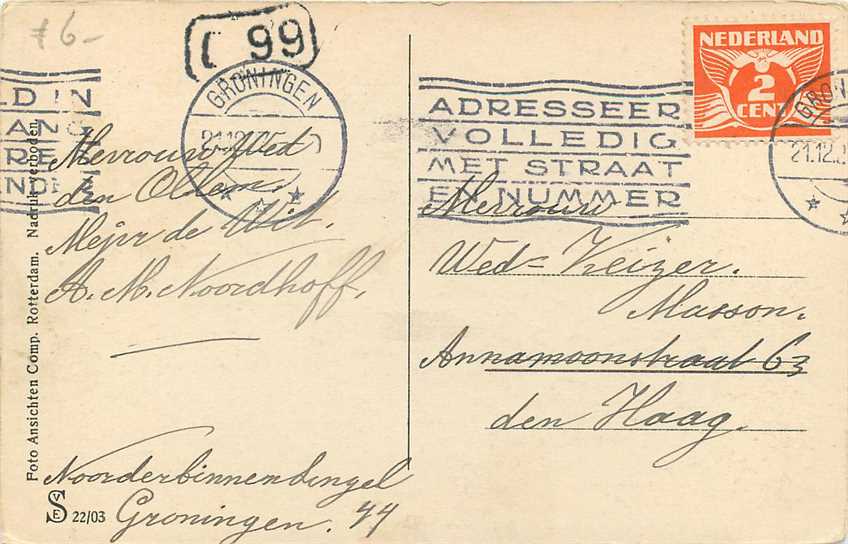 € 6-
99
GRONINGEN
NEDERLAND
2
CENT
ADRESSEER
VOLLEDIG
MET STRAAT
EN NUMMER
GRON
21.12.2
LD IN
ANG
RES
Mevrouw Wed
den Ollem.
Mejvr de Wit.
A. M. Noordhoff.
Noorderbinnensingel
Groningen. 44
Mevrouw
Wed= Keizer.
Masson.
Annamoonstraat 63
den Haag.
Foto Ansichten Comp. Rotterdam. Nadruk verboden.
22/03